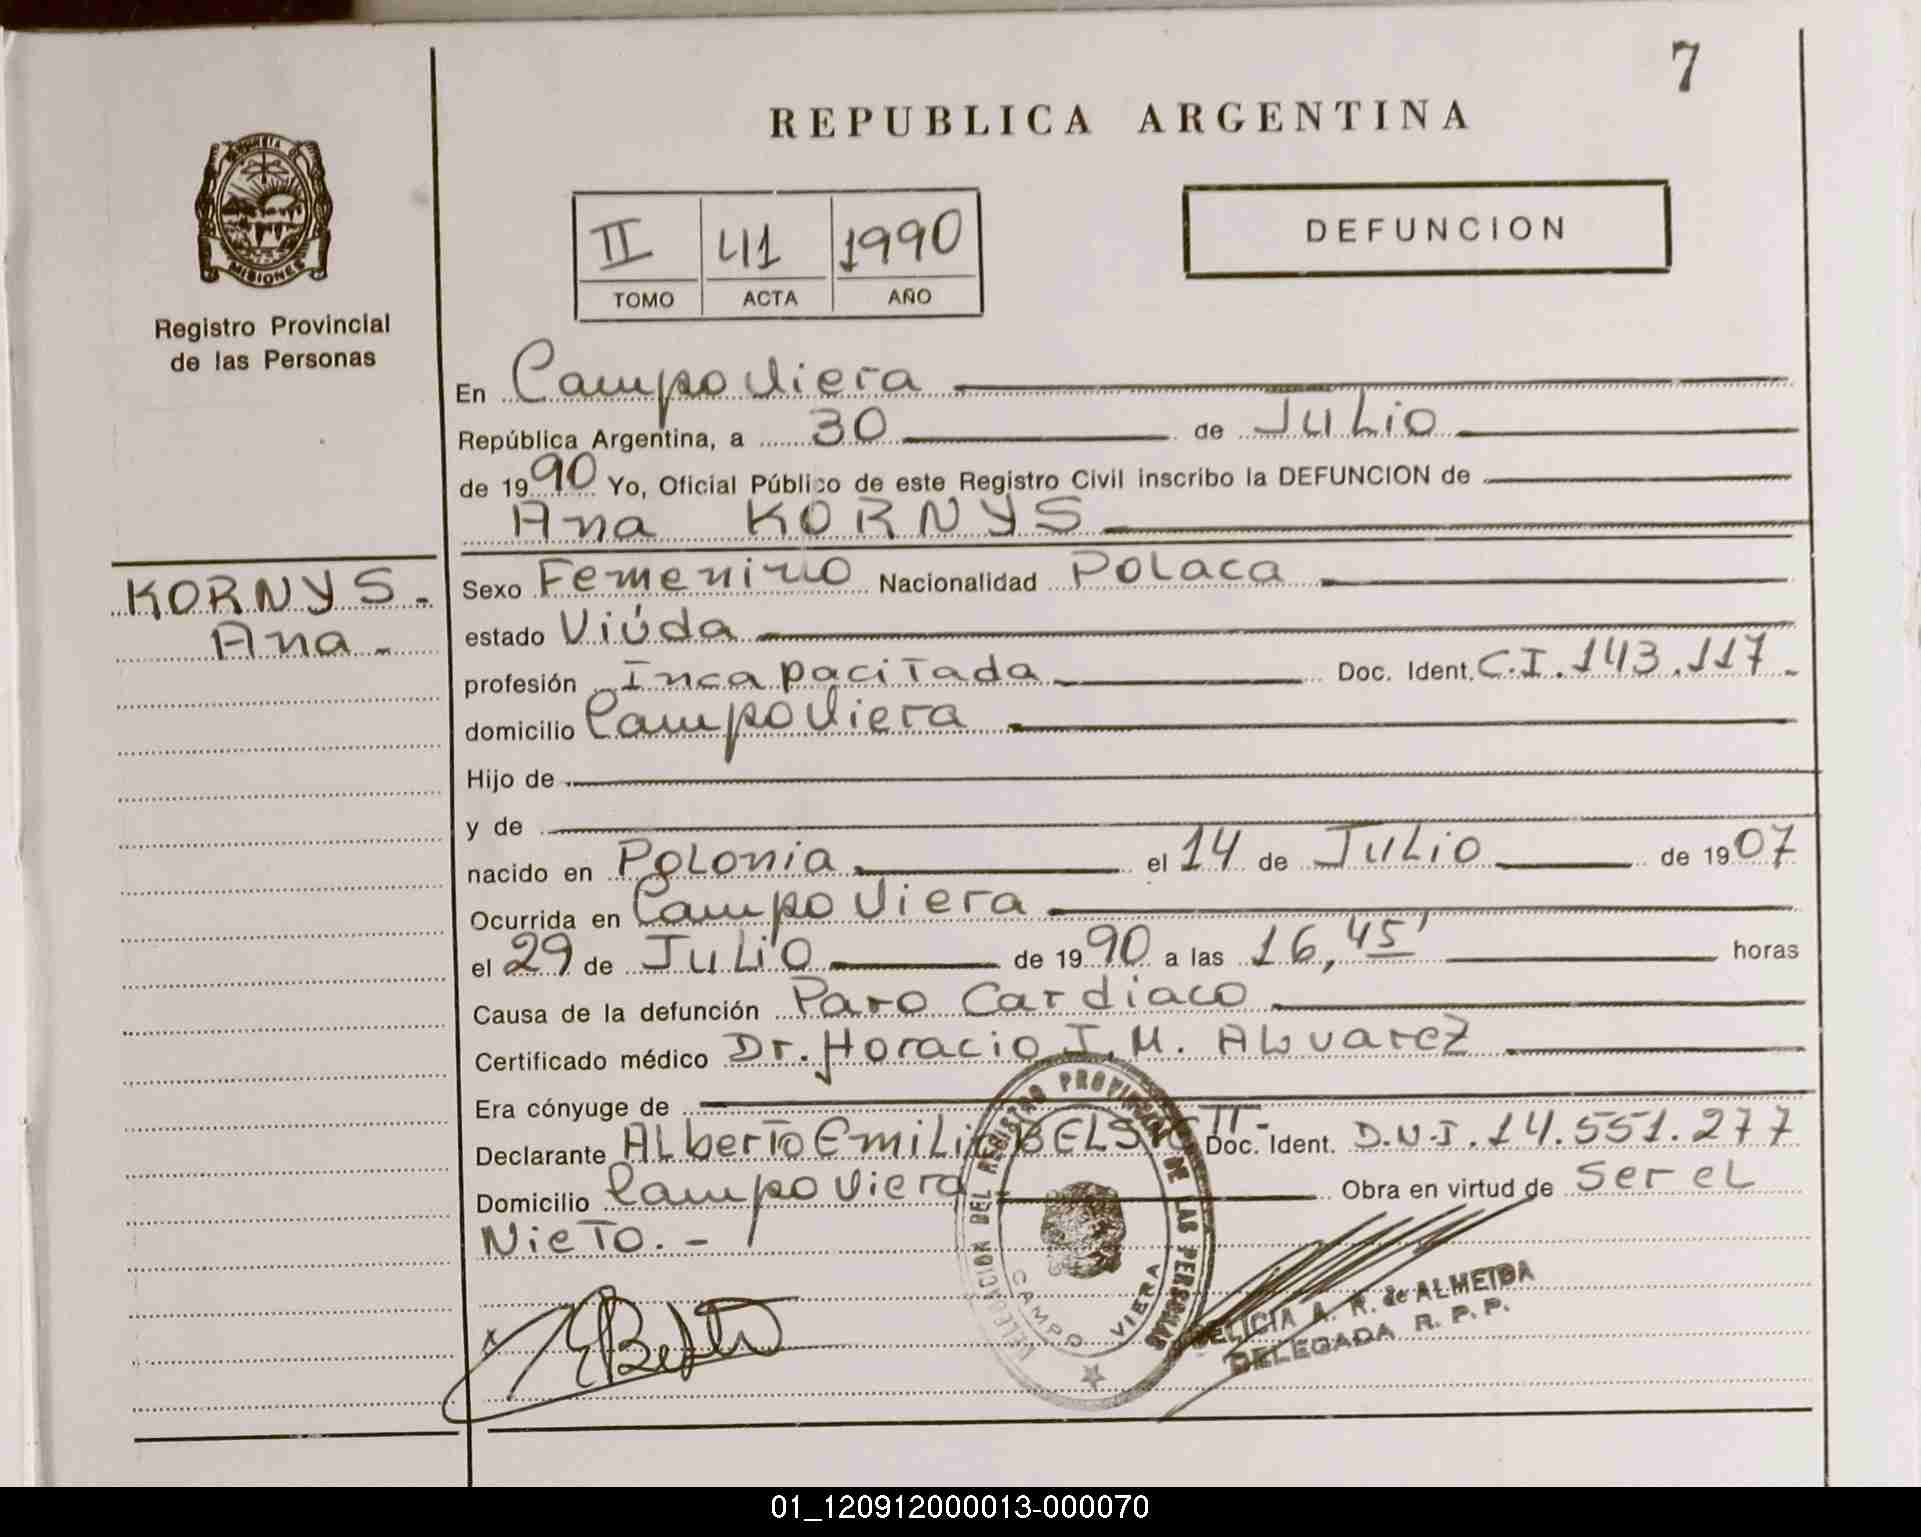 7
REPUBLICA ARGENTINA
MISIONES
Registro Provincial
de las Personas
II 41 1990
TOMO ACTA AÑO
DEFUNCION
En Campo Viera
República Argentina, a 30 de Julio
de 1990 Yo, Oficial Público de este Registro Civil inscribo la DEFUNCION de
Ana KORNYS
KORNYS.
Ana.
Sexo Femenino Nacionalidad Polaca
estado Viúda
profesión Incapacitada Doc. Ident. C.I. 143.117.
domicilio Campo Viera
Hijo de
y de
nacido en Polonia el 14 de Julio de 1907
Ocurrida en Campo Viera
el 29 de Julio de 1990 a las 16,45' horas
Causa de la defunción Paro Cardiaco
Certificado médico Dr. Horacio J. M. Alvarez
Era cónyuge de
Declarante Alberto Emilio Doc. Ident. D.N.I. 14.551.277
Domicilio Campo Viera Obra en virtud de Ser el
Nieto.-
DELEGACION DEL REGISTRO PROVINCIAL DE LAS PERSONAS
CAMPO VIERA
A. R. de ALMEIDA
DELEGADA R. P. P.
01_120912000013-000070